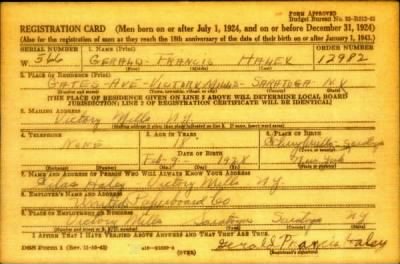 FORM APPROVED
Budget Bureau No.
REGISTRATION CARD (Men born on or after July 1, 1924, and on or before December 31, 1924)
(Also for the registration of men as they reach the 18th anniversary of the date of their birth on or after January 1, 1943.)
SERIAL NUMBER 1. NAME (Print) ORDER NUMBER
W 566 GERALD FRANCIS HALEY 12982
(First) (Middle) (Last)
2. PLACE OF RESIDENCE (Print)
GATES AVE VICTORY MILLS SARATOGA N.Y
(Number and street) (Town, township, village, or city) (County) (State)
[THE PLACE OF RESIDENCE GIVEN ON LINE 2 ABOVE WILL DETERMINE LOCAL BOARD
JURISDICTION; LINE 2 OF REGISTRATION CERTIFICATE WILL BE IDENTICAL]
3. MAILING ADDRESS
Victory Mills N.Y.
[Mailing address if other than place indicated on line 2. If same, insert word same]
4. TELEPHONE 5. AGE IN YEARS 6. PLACE OF BIRTH
None 18
DATE OF BIRTH
Feb 9
New York
7. NAME AND ADDRESS OF PERSON WHO WILL ALWAYS KNOW YOUR ADDRESS
Haley Victory Mills N.Y.
8. EMPLOYER'S NAME AND ADDRESS
United Paperboard Co
9. PLACE OF EMPLOYMENT OR BUSINESS
Victory Mills Saratoga Saratoga NY
(Number and street or R. F. D. number) (Town) (County) (State)
I AFFIRM THAT I HAVE VERIFIED ABOVE ANSWERS AND THAT THEY ARE TRUE.
DSS Form 1 (OVER) Gerald Francis Haley
(Registrant's signature)